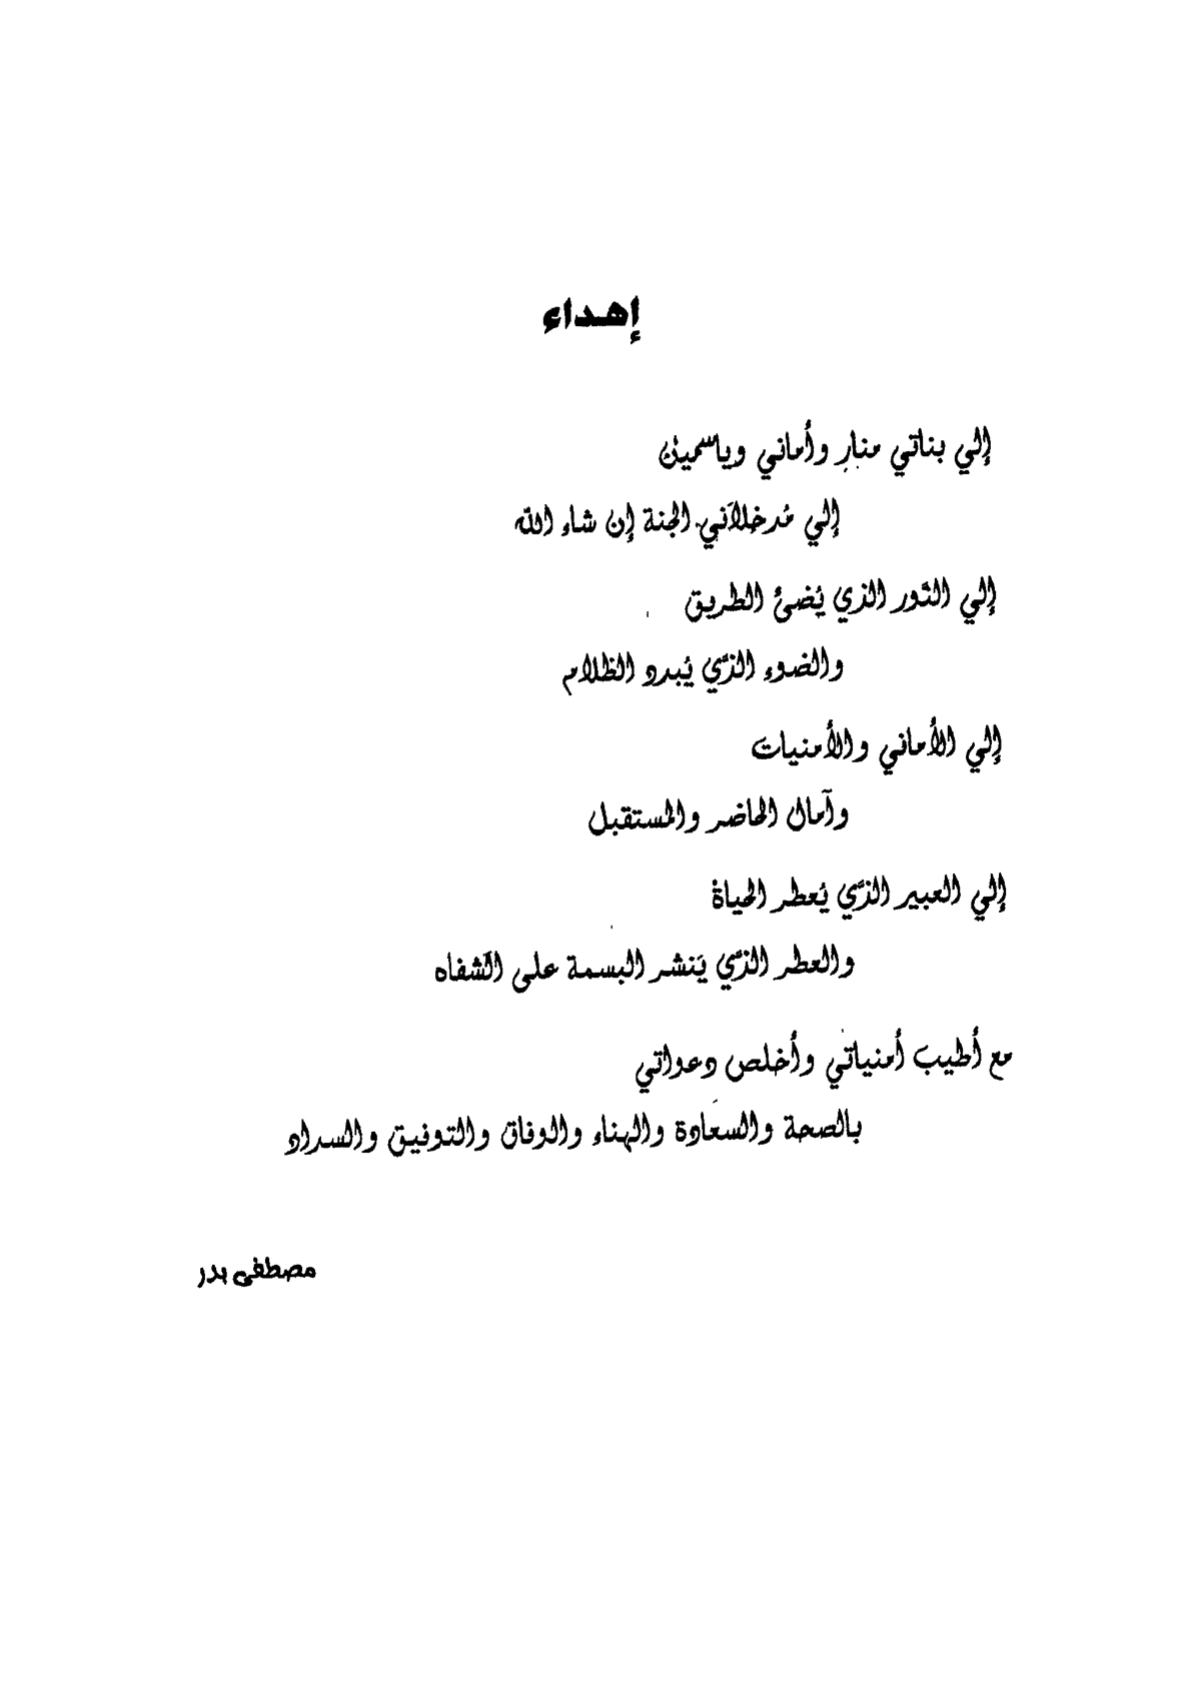 إهداء
إلي بناتي منار وأماني وياسمين
إلي مُدخلاَتي الجنة إن شاء الله
إلي النَور الذي يُضئ الطريق
والضوء الذَي يُبدد الظلام
إلي الأماني والأمنيات
وآمال الحاضر والمستقبل
إلي العبير الذَي يُعطر الحياة
والعطر الذَي يَنشر البسمة على الَشفاه
مع أطيب أمنياتي وأخلص دعواتي
بالصحة والسعادة والهناء والوفاق والتوفيق والسداد
مصطفى بدر